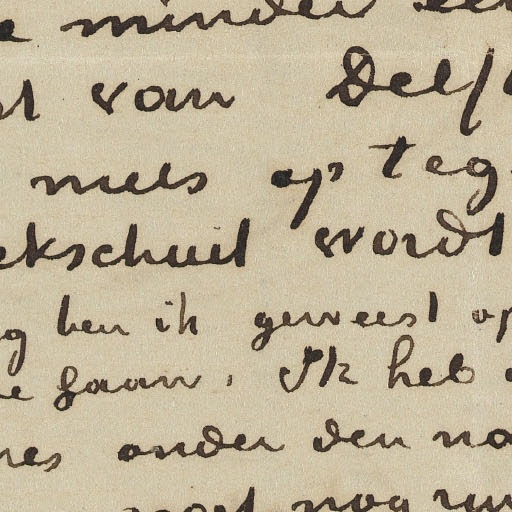 e minder een
st van Delft
mets op teg
ekschuit wordt
g ben ik geweest op
te gaan. Ik heb
nes onder den na
nog